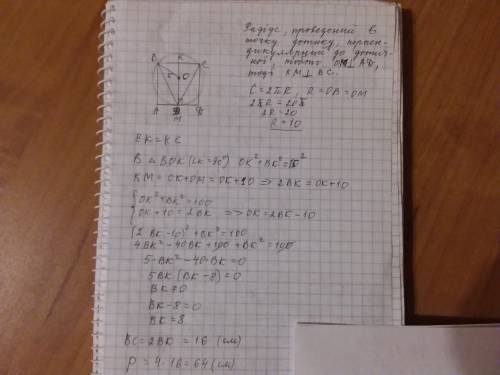 Радіус, проведений в
точку дотику, перпен-
дикулярний до дотич-
ної, тобто OM⊥AD,
тоді KM⊥BC.
B K C
O
A M D
C = 2πR, R = OB = OM
2πR = 20π
2R = 20
R = 10
BK = KC
В △BOK (∠K = 90°) OK² + BK² = 10²
KM = OK + OM = OK + 10 ⇒ 2BK = OK + 10
{ OK² + BK² = 100
OK + 10 = 2BK => OK = 2BK - 10
(2BK - 10)² + BK² = 100
4BK² - 40BK + 100 + BK² = 100
5·BK² - 40·BK = 0
5BK (BK - 8) = 0
BK ≠ 0
BK - 8 = 0
BK = 8
BC = 2BK = 16 (см)
P = 4·16 = 64 (см)